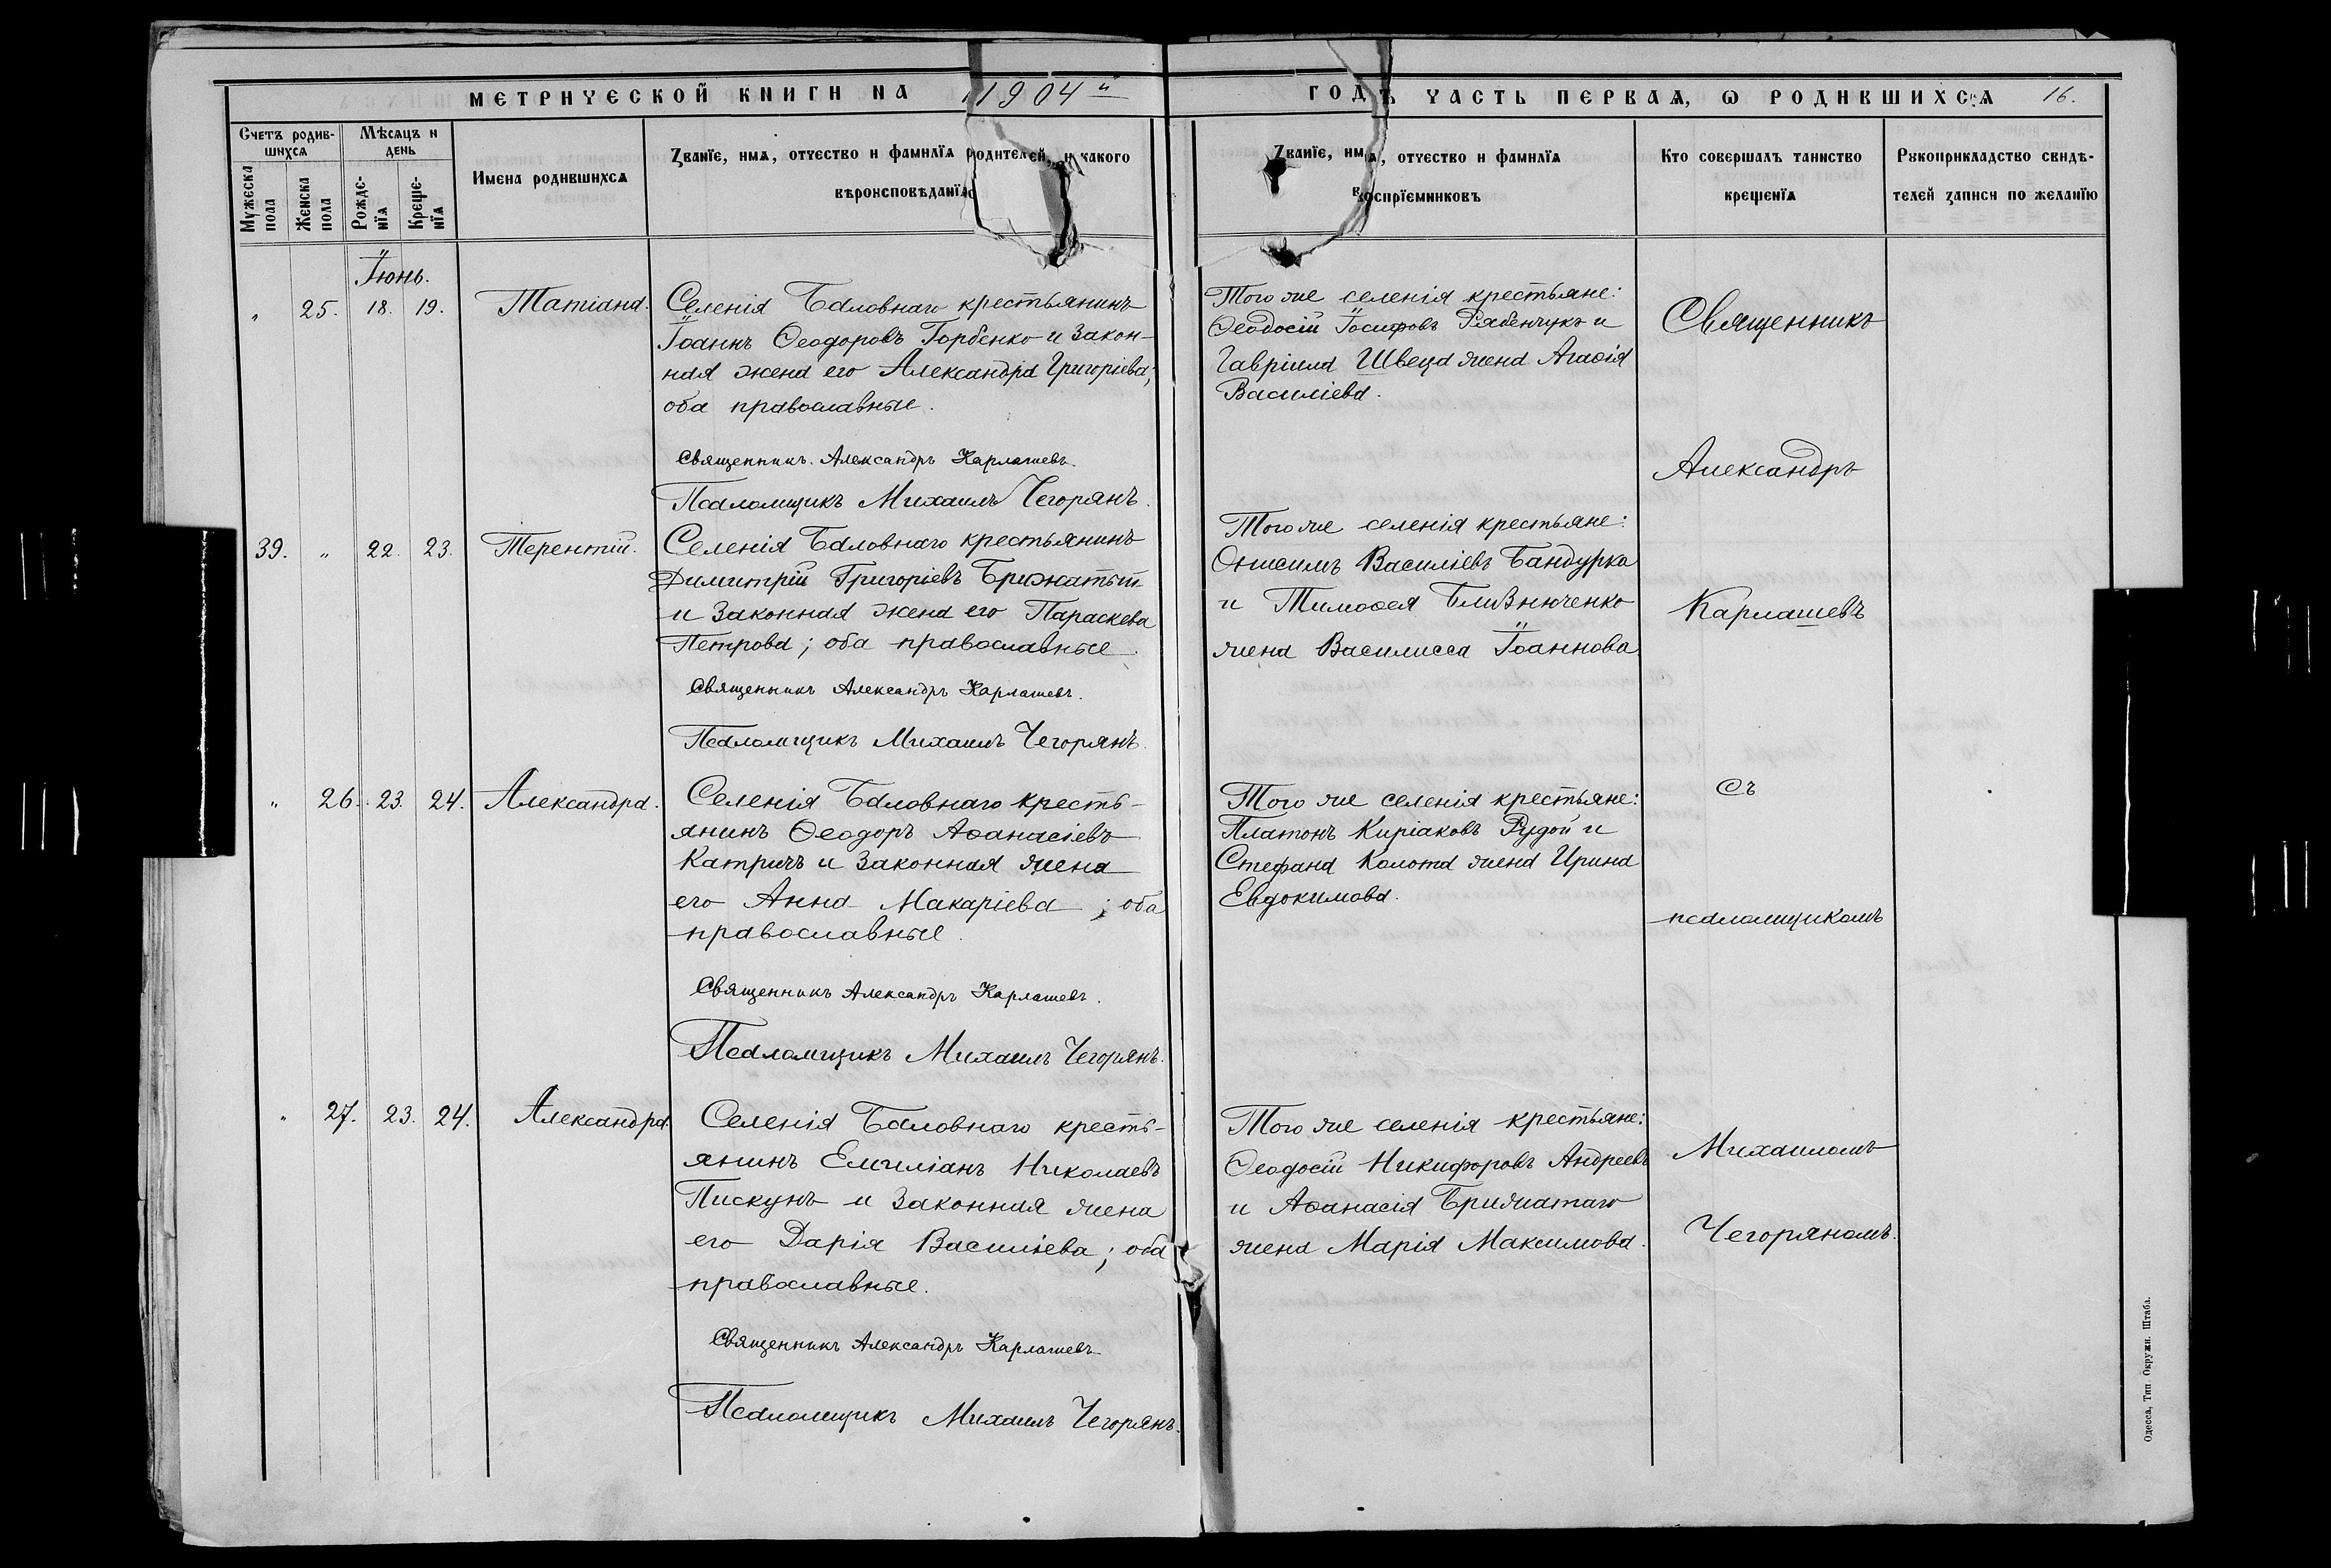 МЕТРИЧЕСКОЙ КНИГИ НА 1904й
ГОДЪ ЧАСТЬ ПЕРВАЯ, Ѡ РОДИВШИХСѦ 16.
Счетъ родив-
шихсѧ
Мужеска
пола
Женска
пола
Мѣсѧцъ и
день
Рожде-
нїѧ
Креще-
нїѧ
Имена родившихсѧ
Званїе, имѧ, отчество и фамилїѧ родителей, и какого
вѣроисповѣданїѧ
Званїе, имѧ, отчество и фамилїѧ
воспрїемниковъ
Кто совершалъ таинство
крещенїѧ
Рукоприкладство свидѣ-
телей записи по желанїю
Іюнь.
„ 25. 18. 19. Татіана.
Селенія Баловнаго крестьянинъ
Іоаннъ Ѳеодоровъ Горбенко и закон-
ная жена его Александра Григоріева;
оба православные.
Священникъ. Александръ Карлашевъ.
Псаломщикъ Михаилъ Чегорянъ.
Того же селенія крестьяне:
Ѳеодосій Іосифовъ Рябенчукъ и
Гавріила Швеца жена Агафія
Василіева.
39. „ 22. 23. Терентій.
Селенія Баловнаго крестьянинъ
Димитрій Григоріевъ Брижатый
и законная жена его Параскева
Петрова; оба православные.
Священникъ Александръ Карлашевъ.
Псаломщикъ Михаилъ Чегорянъ.
Того же селенія крестьяне:
Онисимъ Василіевъ Бандурка
и Тимоѳея Близнюченко
жена Василисса Іоаннова
„ 26. 23. 24. Александра.
Селенія Баловнаго кресть-
янинъ Ѳеодоръ Аѳанасіевъ
Катричъ и законная жена
его Анна Макаріева; оба
православные.
Священникъ Александръ Карлашевъ.
Псаломщикъ Михаилъ Чегорянъ.
Того же селенія крестьяне:
Платонъ Киріаковъ Рудой и
Стефана Колота жена Ирина
Евдокимова.
„ 27. 23. 24. Александра.
Селенія Баловнаго кресть-
янинъ Емиліанъ Николаевъ
Пискунъ и законная жена
его Дарія Василіева; оба
православные.
Священникъ Александръ Карлашевъ
Псаломщикъ Михаилъ Чегорянъ.
Того же селенія крестьяне:
Ѳеодосій Никифоровъ Андреевъ
и Аѳанасія Брижатаго
жена Марія Максимова.
Священникъ
Александръ
Карлашевъ
съ
псаломщикомъ
Михаиломъ
Чегоряномъ.
Одесса, Тип. Окружн. Штаба.